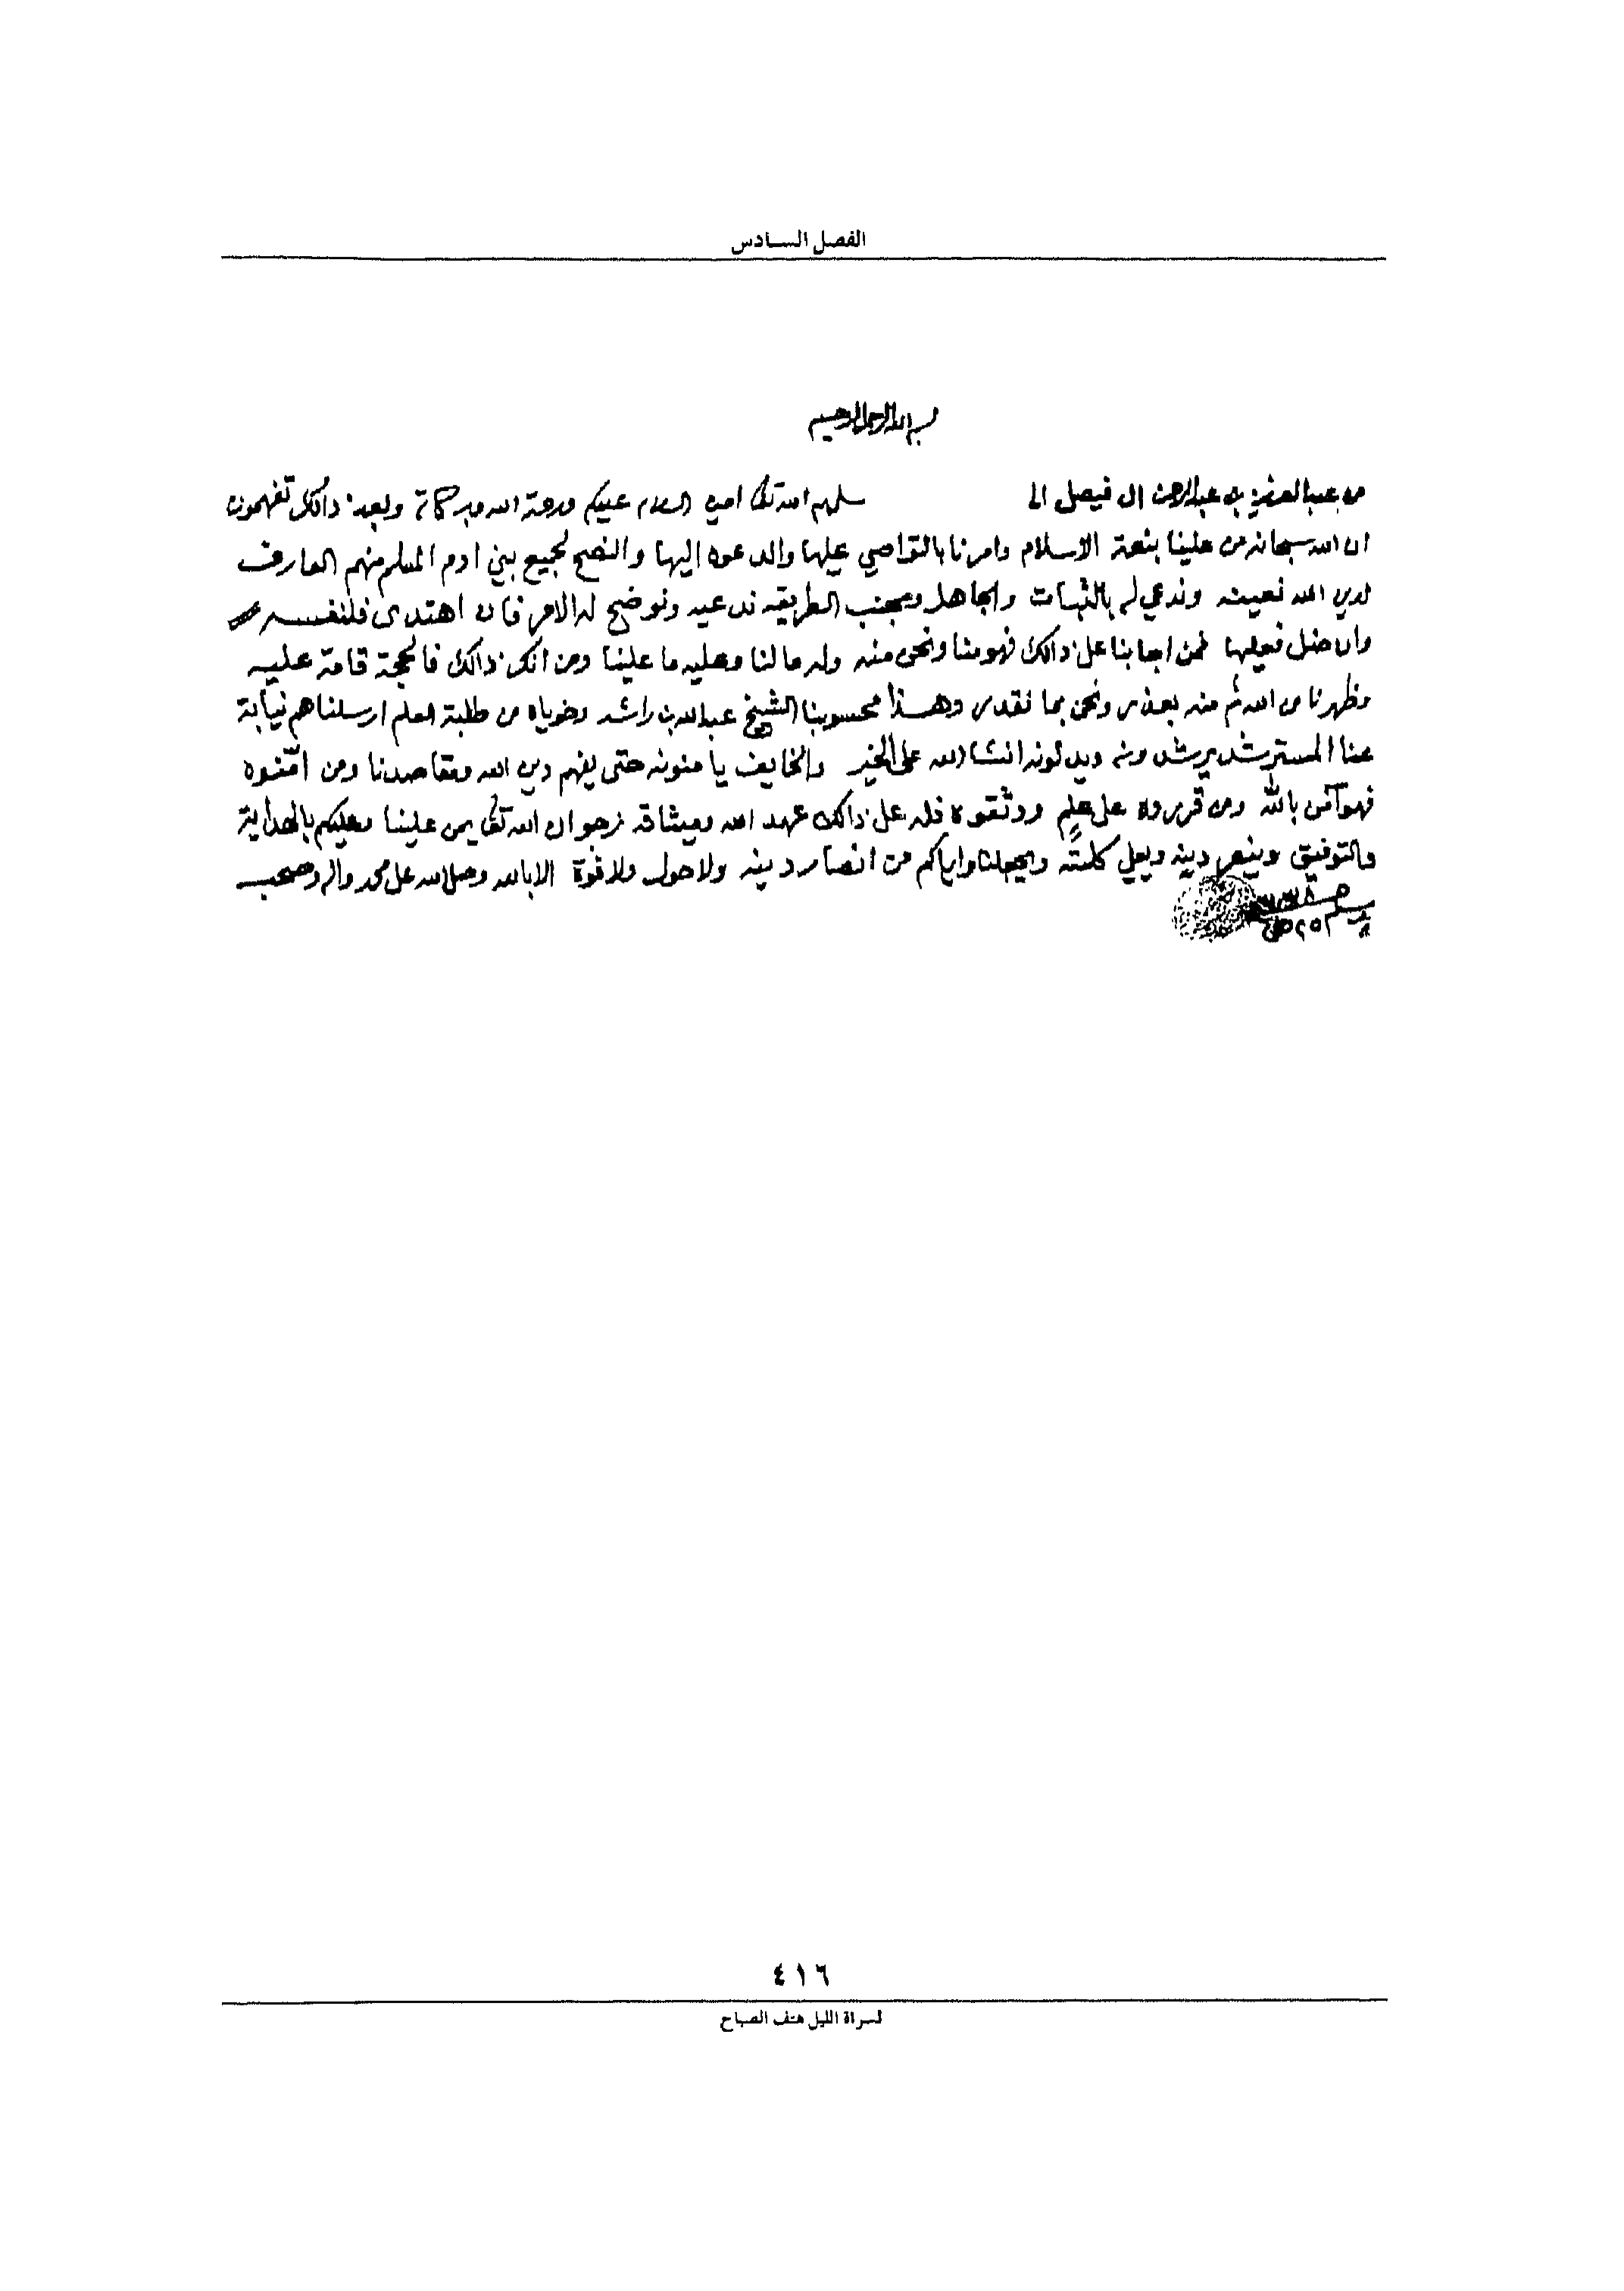 الفصل السادس
بسم الله الرحمن الرحيم
من عبدالعزيز بن عبدالرحمن ال فيصل الى سلمهم الله تعالى امين السلام عليكم ورحمة الله وبركاتة وبعد ذالك تفهمون
ان الله سبحانه من علينا بنعمة الاسلام وامرنا بالتواصي عليها والدعوه اليها والنصح لجميع بني ادم المسلم منهم العارف
لدين الله نعينه وندعي له بالثبات والجاهل ومجنب الطريقه ندعيه ونوضح له الامر فان اهتدى فلنفسه
وان ضل فعليها فمن اجابنا على ذالك فهو منا ونحن منه وله ما لنا وعليه ما علينا ومن انكر ذالك فالحجة قامة عليه
وظهرنا من الله ثم منه بعذر ونحن بما نقدر وهذا محسوبنا الشيخ عبدالله بن راشد وخوياه من طلبة العلم ارسلناهم نيابة
عنا المسترشد يرشدونه ويدلونه انشا الله على الخير والخايف يا منونه حتى يفهم دين الله ومقاصدنا ومن امّنوه
فهو آمن بالله ومن قرروه على علم ووثقوه فله على ذالك عهد الله وميثاقه نرجوا ان الله تعالى يمن علينا وعليكم بالهداية
والتوفيق وينصر دينه ويعلي كلمته ويجعلنا واياكم من انصار دينه ولا حول ولا قوة الا بالله وصلى الله على محمد واله وصحبه
وسلم
٤١٦
لسراة الليل هتف الصباح